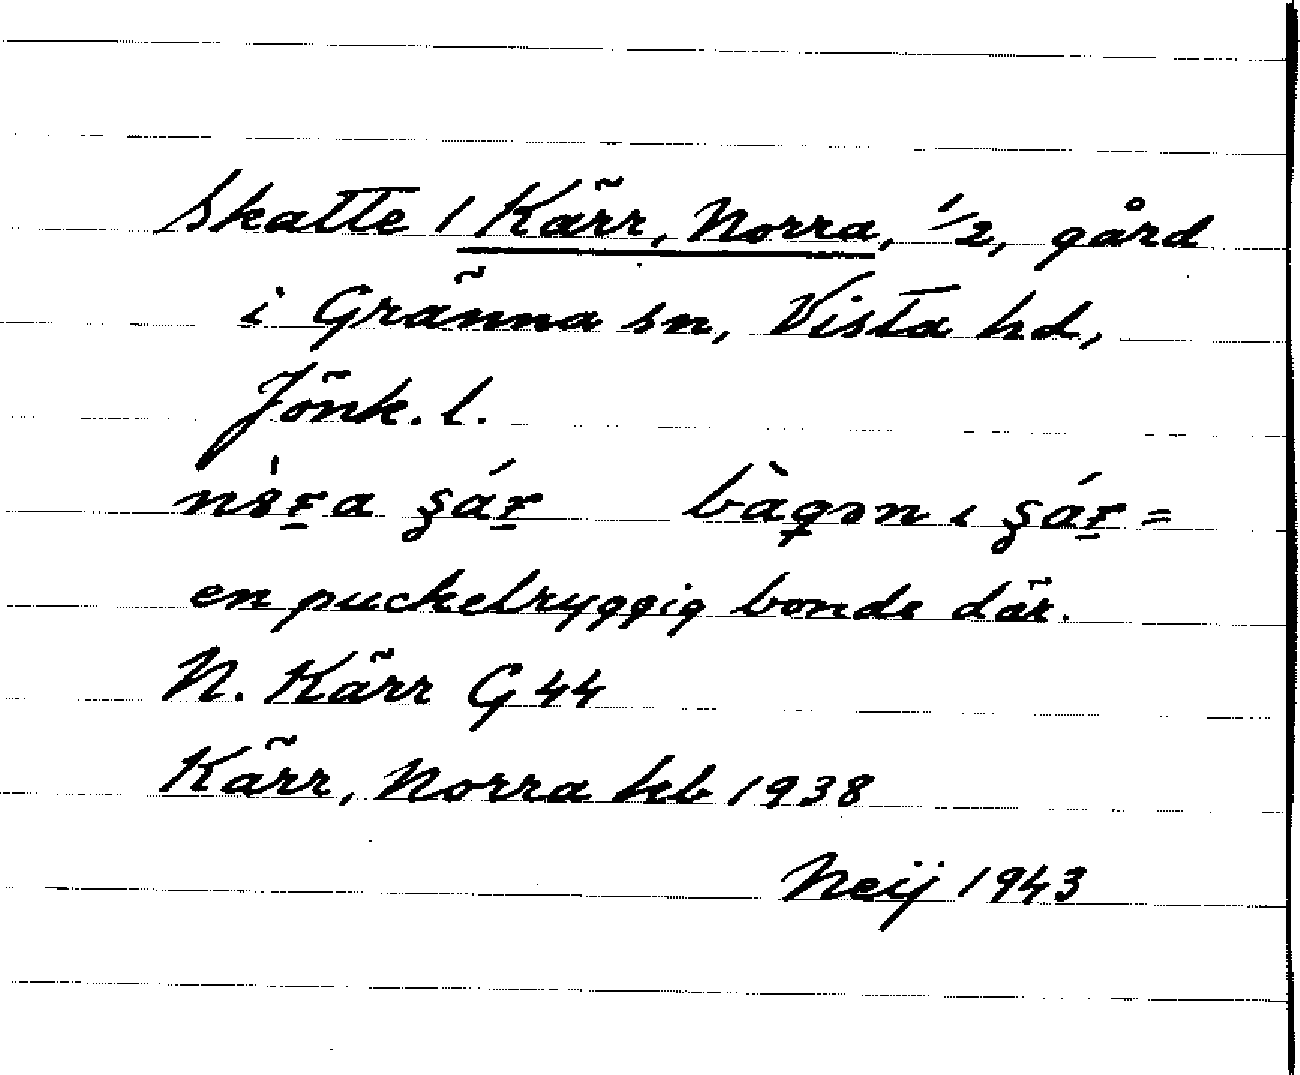 Skatte 1 Kärr, Norra, 1/2, gård
i Gränna sn, Vista hd,
Jönk. l.
i
en puckelryggig bonde där.
N. Kärr G 44
Kärr, Norra kb 1938
Neij 1943